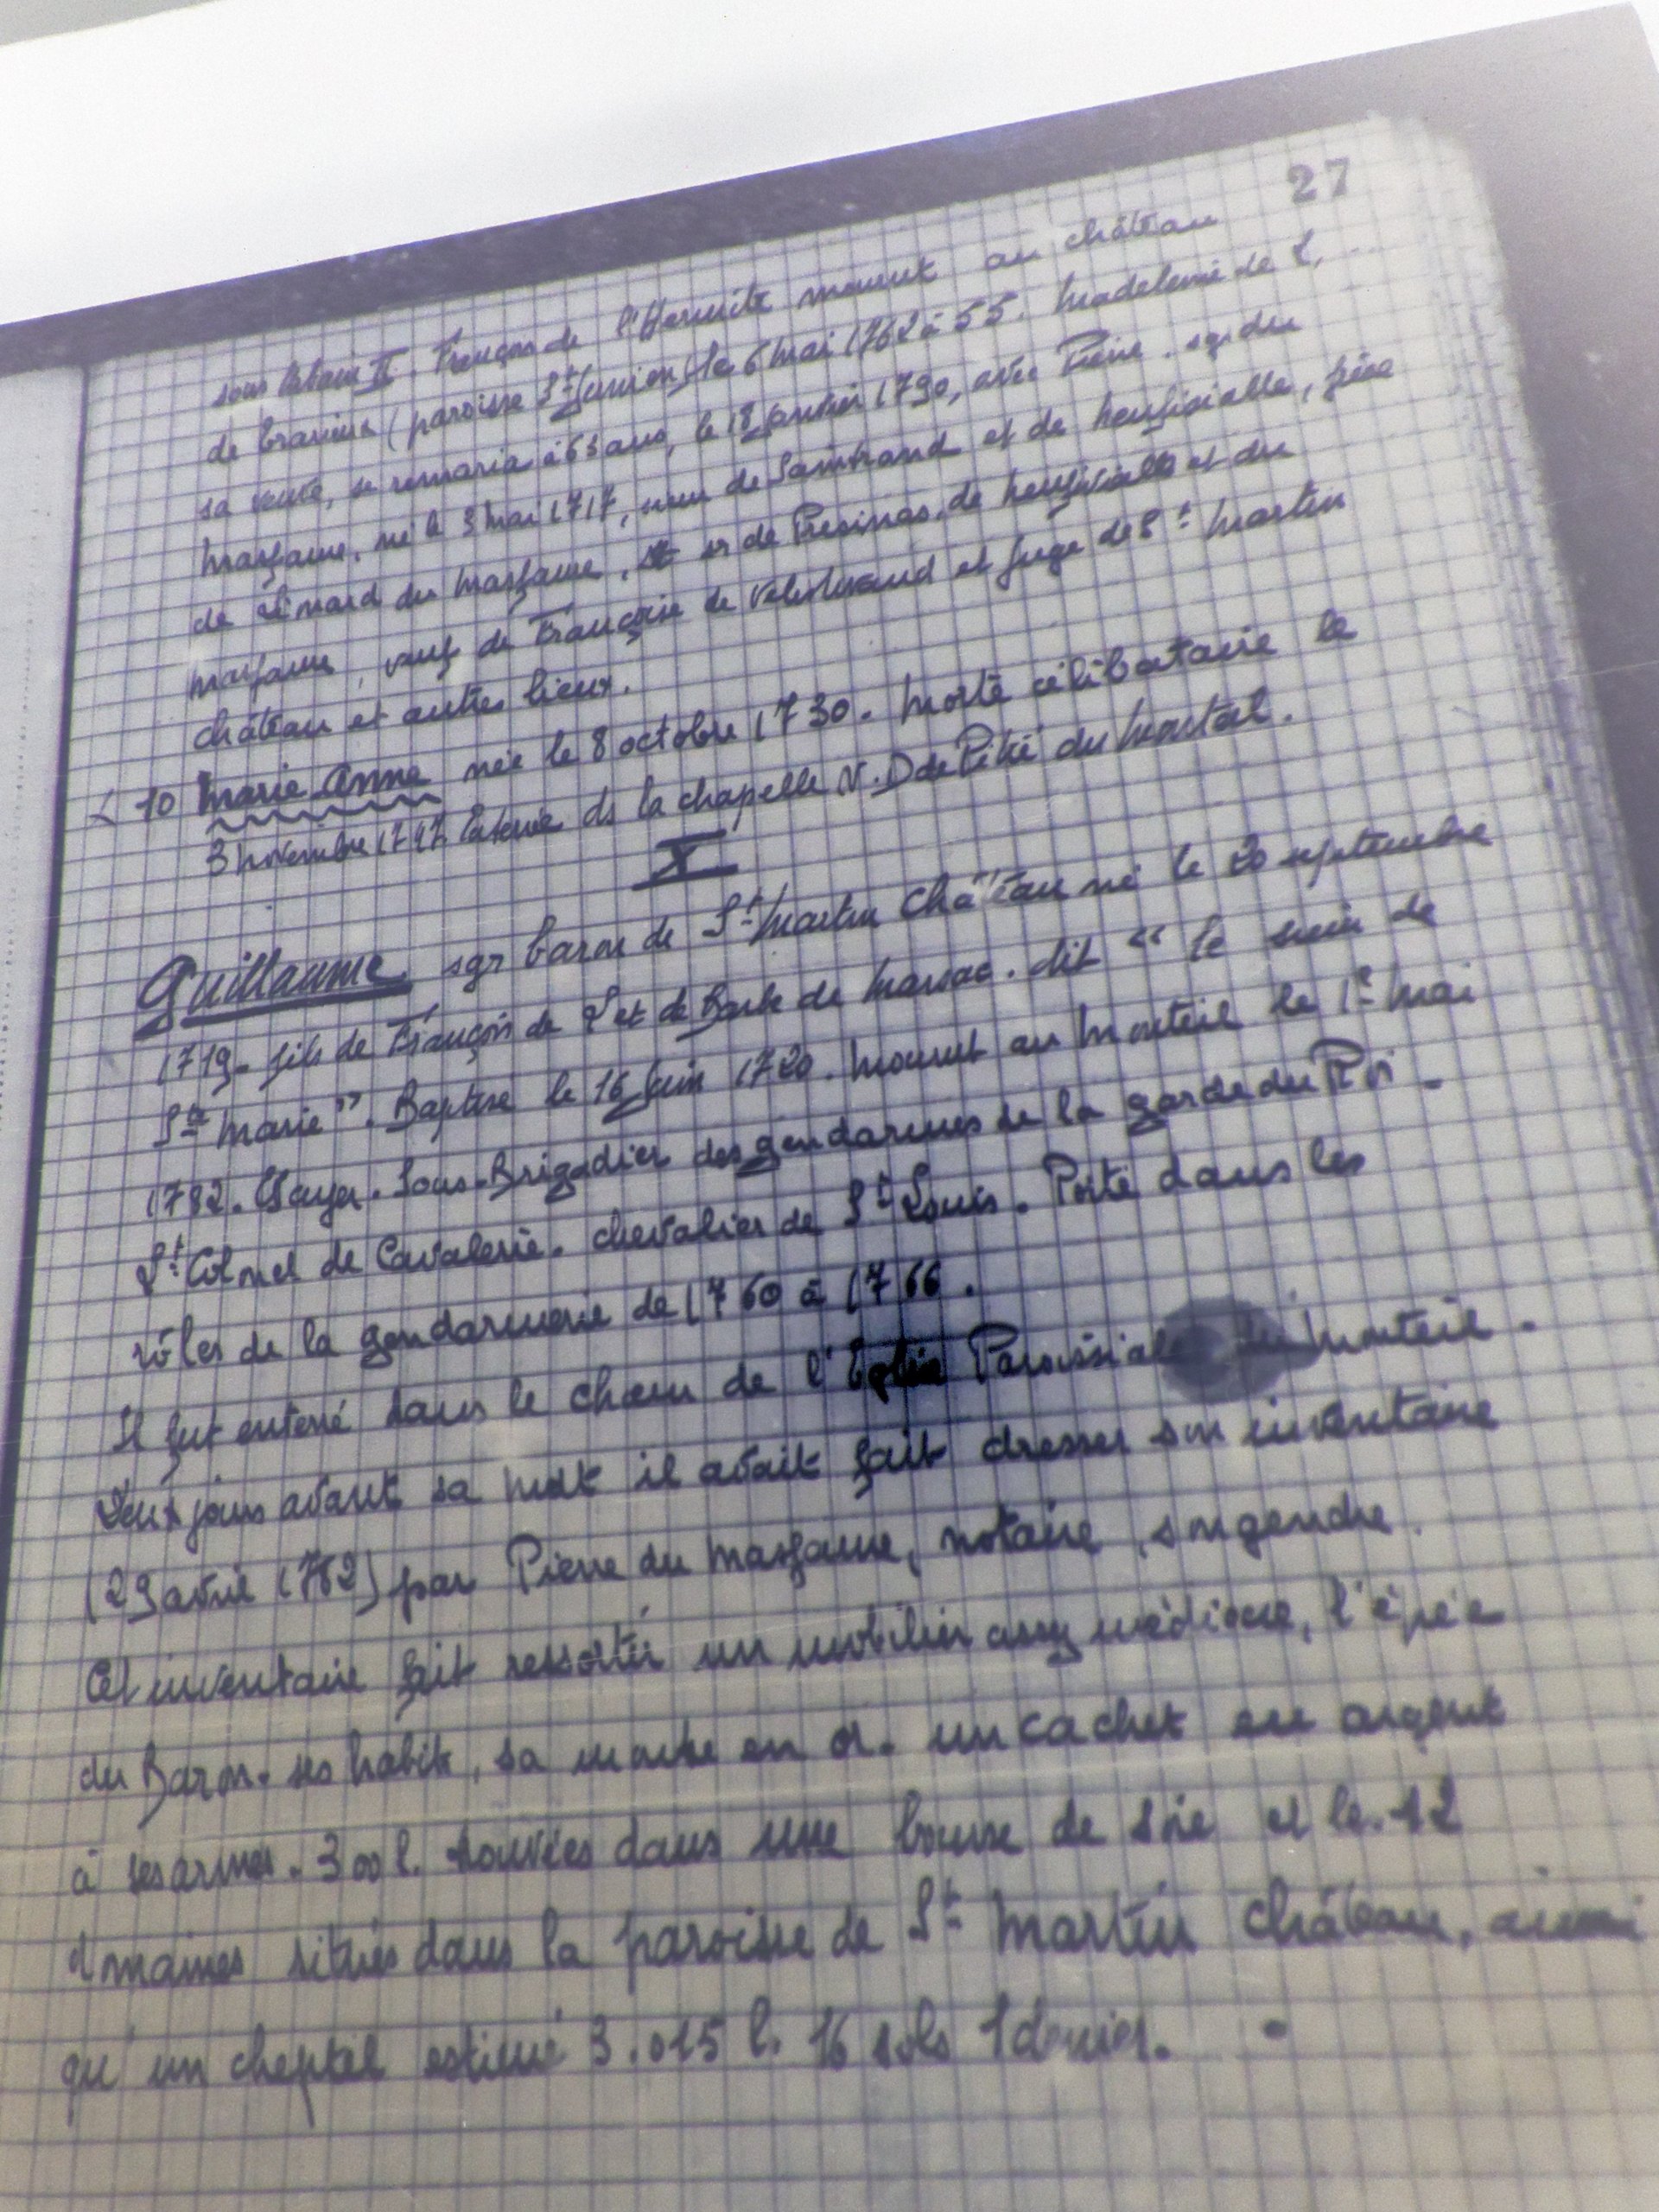 27
sous Urbain II. François de l'Hermite mourut au château
de (paroisse St Junien) le 6 mai 1762 à 55. Madeleine de L,
sa veuve, se remaria à 63 ans, le 18 janvier 1790, avec Pierre. sgr du
masfaure, né le 3 mai 1717, sieur de Saintrand et de , frère
de Léonard du masfaure, sr de Pressinas, de et du
masfaure, veuf de Françoise de et juge de St martin
château et autres lieux.
10 Marie Anne née le 8 octobre 1730. Morte célibataire le
3 novembre 1747. Enterrée ds la chapelle N.D de Pitié du
X
Guillaume sgr baron de St Martin Château né le 20 septembre
1719. fils de François de L et de de Marsac. dit " le de
Ste Marie". Baptisé le 16 juin 1720. Mourut au Monteil le 1er Mai
1782. Ecuyer. Sous-Brigadier des gendarmes de la garde du Roi.
Lt Colonel de Cavalerie. chevalier de St Louis. Porté dans les
rôles de la gendarmerie de 1760 à 1766.
Il fut enterré dans le choeur de l'Eglise Paroissiale du Monteil.
Deux jours avant sa mort il avait fait dresser son inventaire
(29 avril 1782) par Pierre du Masfaure, notaire, son gendre.
Cet inventaire fait ressortir un mobilier assez médiocre, l'épée
du Baron. ses habits, sa montre en or. un cachet en argent
à ses armes. 300 l. trouvées dans une bourse de soie et le. 12
domaines situés dans la paroisse de St Martin Château, ainsi
qu'un cheptel estimé 3.015 l. 16 sols 1 denier.